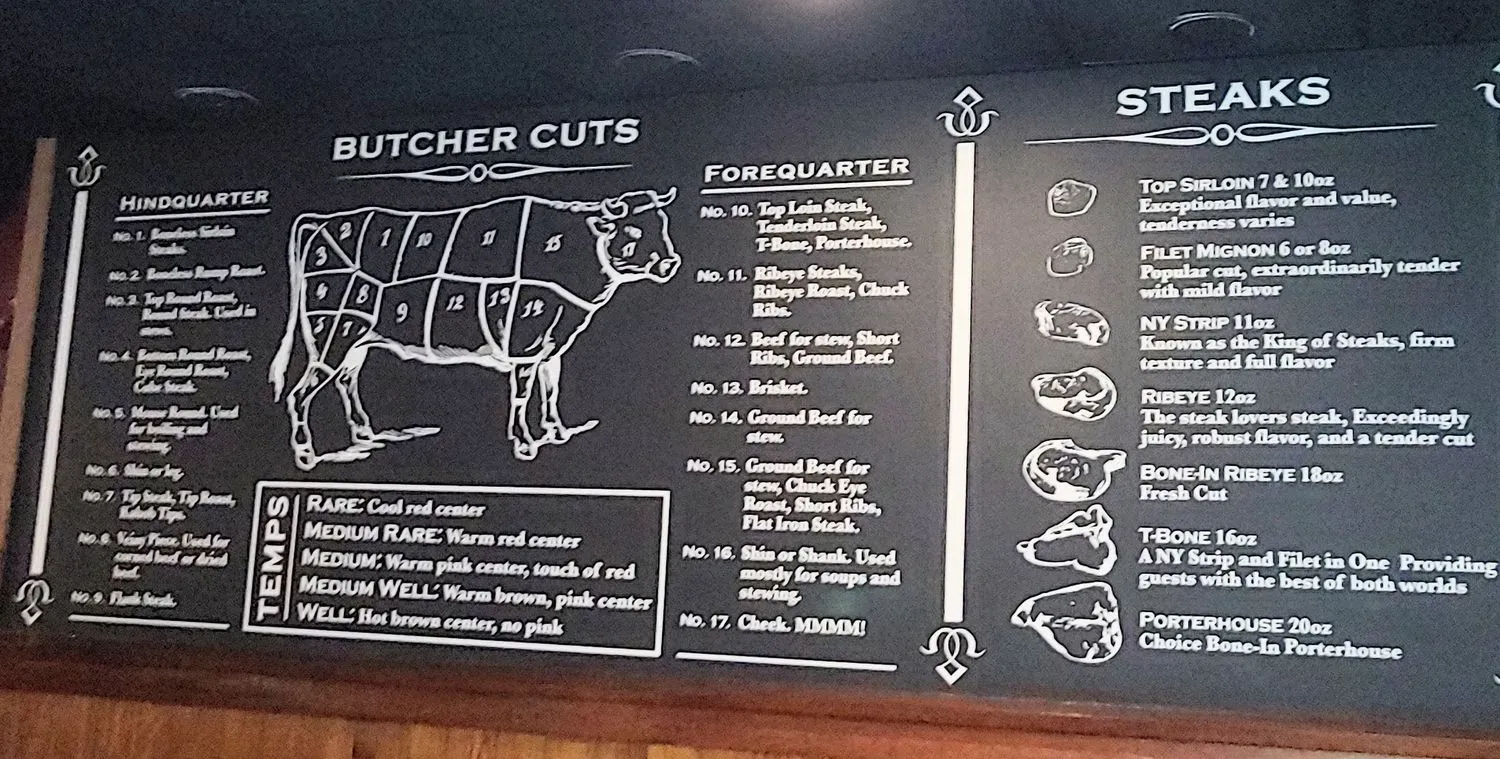 BUTCHER CUTS
HINDQUARTER
No. 1. Boneless Sirloin
Steaks.
No. 2. Boneless Rump Roast.
No. 3. Top Round Roast,
Round Steak. Used in
No. 4. Bottom Round Roast,
Eye Round Roast,
Cube Steak.
No. 5. Mouse Round. Used
for boiling and
stewing.
No. 6. Shin or leg.
No. 7. Tip Steak, Tip Roast,
Kabob Tips.
No. 8. Veiny Piece. Used for
corned beef or dried
beef.
No. 9. Flank Steak.
2
3
1
10
11
15
17
4
8
5
7
9
12
13
14
6
TEMPS
RARE: Cool red center
MEDIUM RARE: Warm red center
MEDIUM: Warm pink center, touch of red
MEDIUM WELL: Warm brown, pink center
WELL: Hot brown center, no pink
FOREQUARTER
No. 10. Top Loin Steak,
Tenderloin Steak,
T-Bone, Porterhouse.
No. 11. Ribeye Steaks,
Ribeye Roast, Chuck
Ribs.
No. 12. Beef for stew, Short
Ribs, Ground Beef.
No. 13. Brisket.
No. 14. Ground Beef for
stew.
No. 15. Ground Beef for
stew, Chuck Eye
Roast, Short Ribs,
Flat Iron Steak.
No. 16. Shin or Shank. Used
mostly for soups and
stewing.
No. 17. Cheek. MMMM!
STEAKS
TOP SIRLOIN 7 & 10oz
Exceptional flavor and value,
tenderness varies
FILET MIGNON 6 or 8oz
Popular cut, extraordinarily tender
with mild flavor
NY STRIP 11oz
Known as the King of Steaks, firm
texture and full flavor
RIBEYE 12oz
The steak lovers steak, Exceedingly
juicy, robust flavor, and a tender cut
BONE-IN RIBEYE 18oz
Fresh Cut
T-BONE 16oz
A NY Strip and Filet in One Providing
guests with the best of both worlds
PORTERHOUSE 20oz
Choice Bone-In Porterhouse